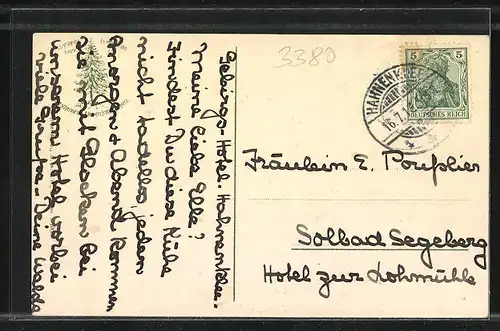 3380
Gebirgs-Hotel-Hahnenklee.
Meine liebe Elle?
Findest Du diese Kühe
nicht tadellos, jeden
Morgen & Abend kommen
sie mit Glocken bei
unserem Hotel vorbei
viele Grüsse Deine
HAHNENKLEE
16.7.
5 5
DEUTSCHES REICH
Fräulein E. Pouplier
Solbad Segeberg
Hotel zur Lohmühle